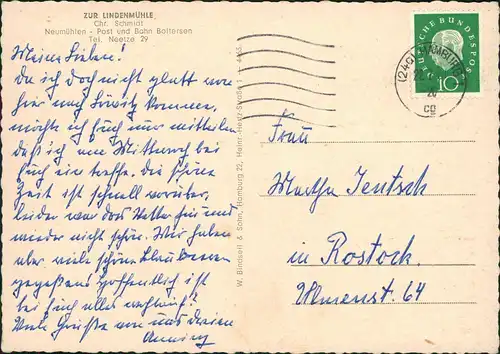 ZUR LINDENMÜHLE
Chr. Schmidt
Neumühlen - Post und Bahn Boltersen
Tel. Neetze 29
Meine Lieben!
Da ich doch nicht glatt von
hier nach kommen,
möchte ich Euch nur mitteilen
daß ich am Mittwoch bei
Euch ein treffe. Die schöne
Zeit ist schnell vorüber,
leider war das Wetter hin und
wieder nicht schön. Wir haben
aber viele schöne Blaubeeren
gegessen. Hoffentlich ist
bei Euch alles wohlauf!
Viele Grüße von uns
W. Bindseil & Sohn, Hamburg 22, Heinr.-Hertz-Straße
DEUTSCHE BUNDESPOST
10
(24a) HAMBURG
20
Frau
Martha Jentsch
in Rostock
Ulmenst. 64